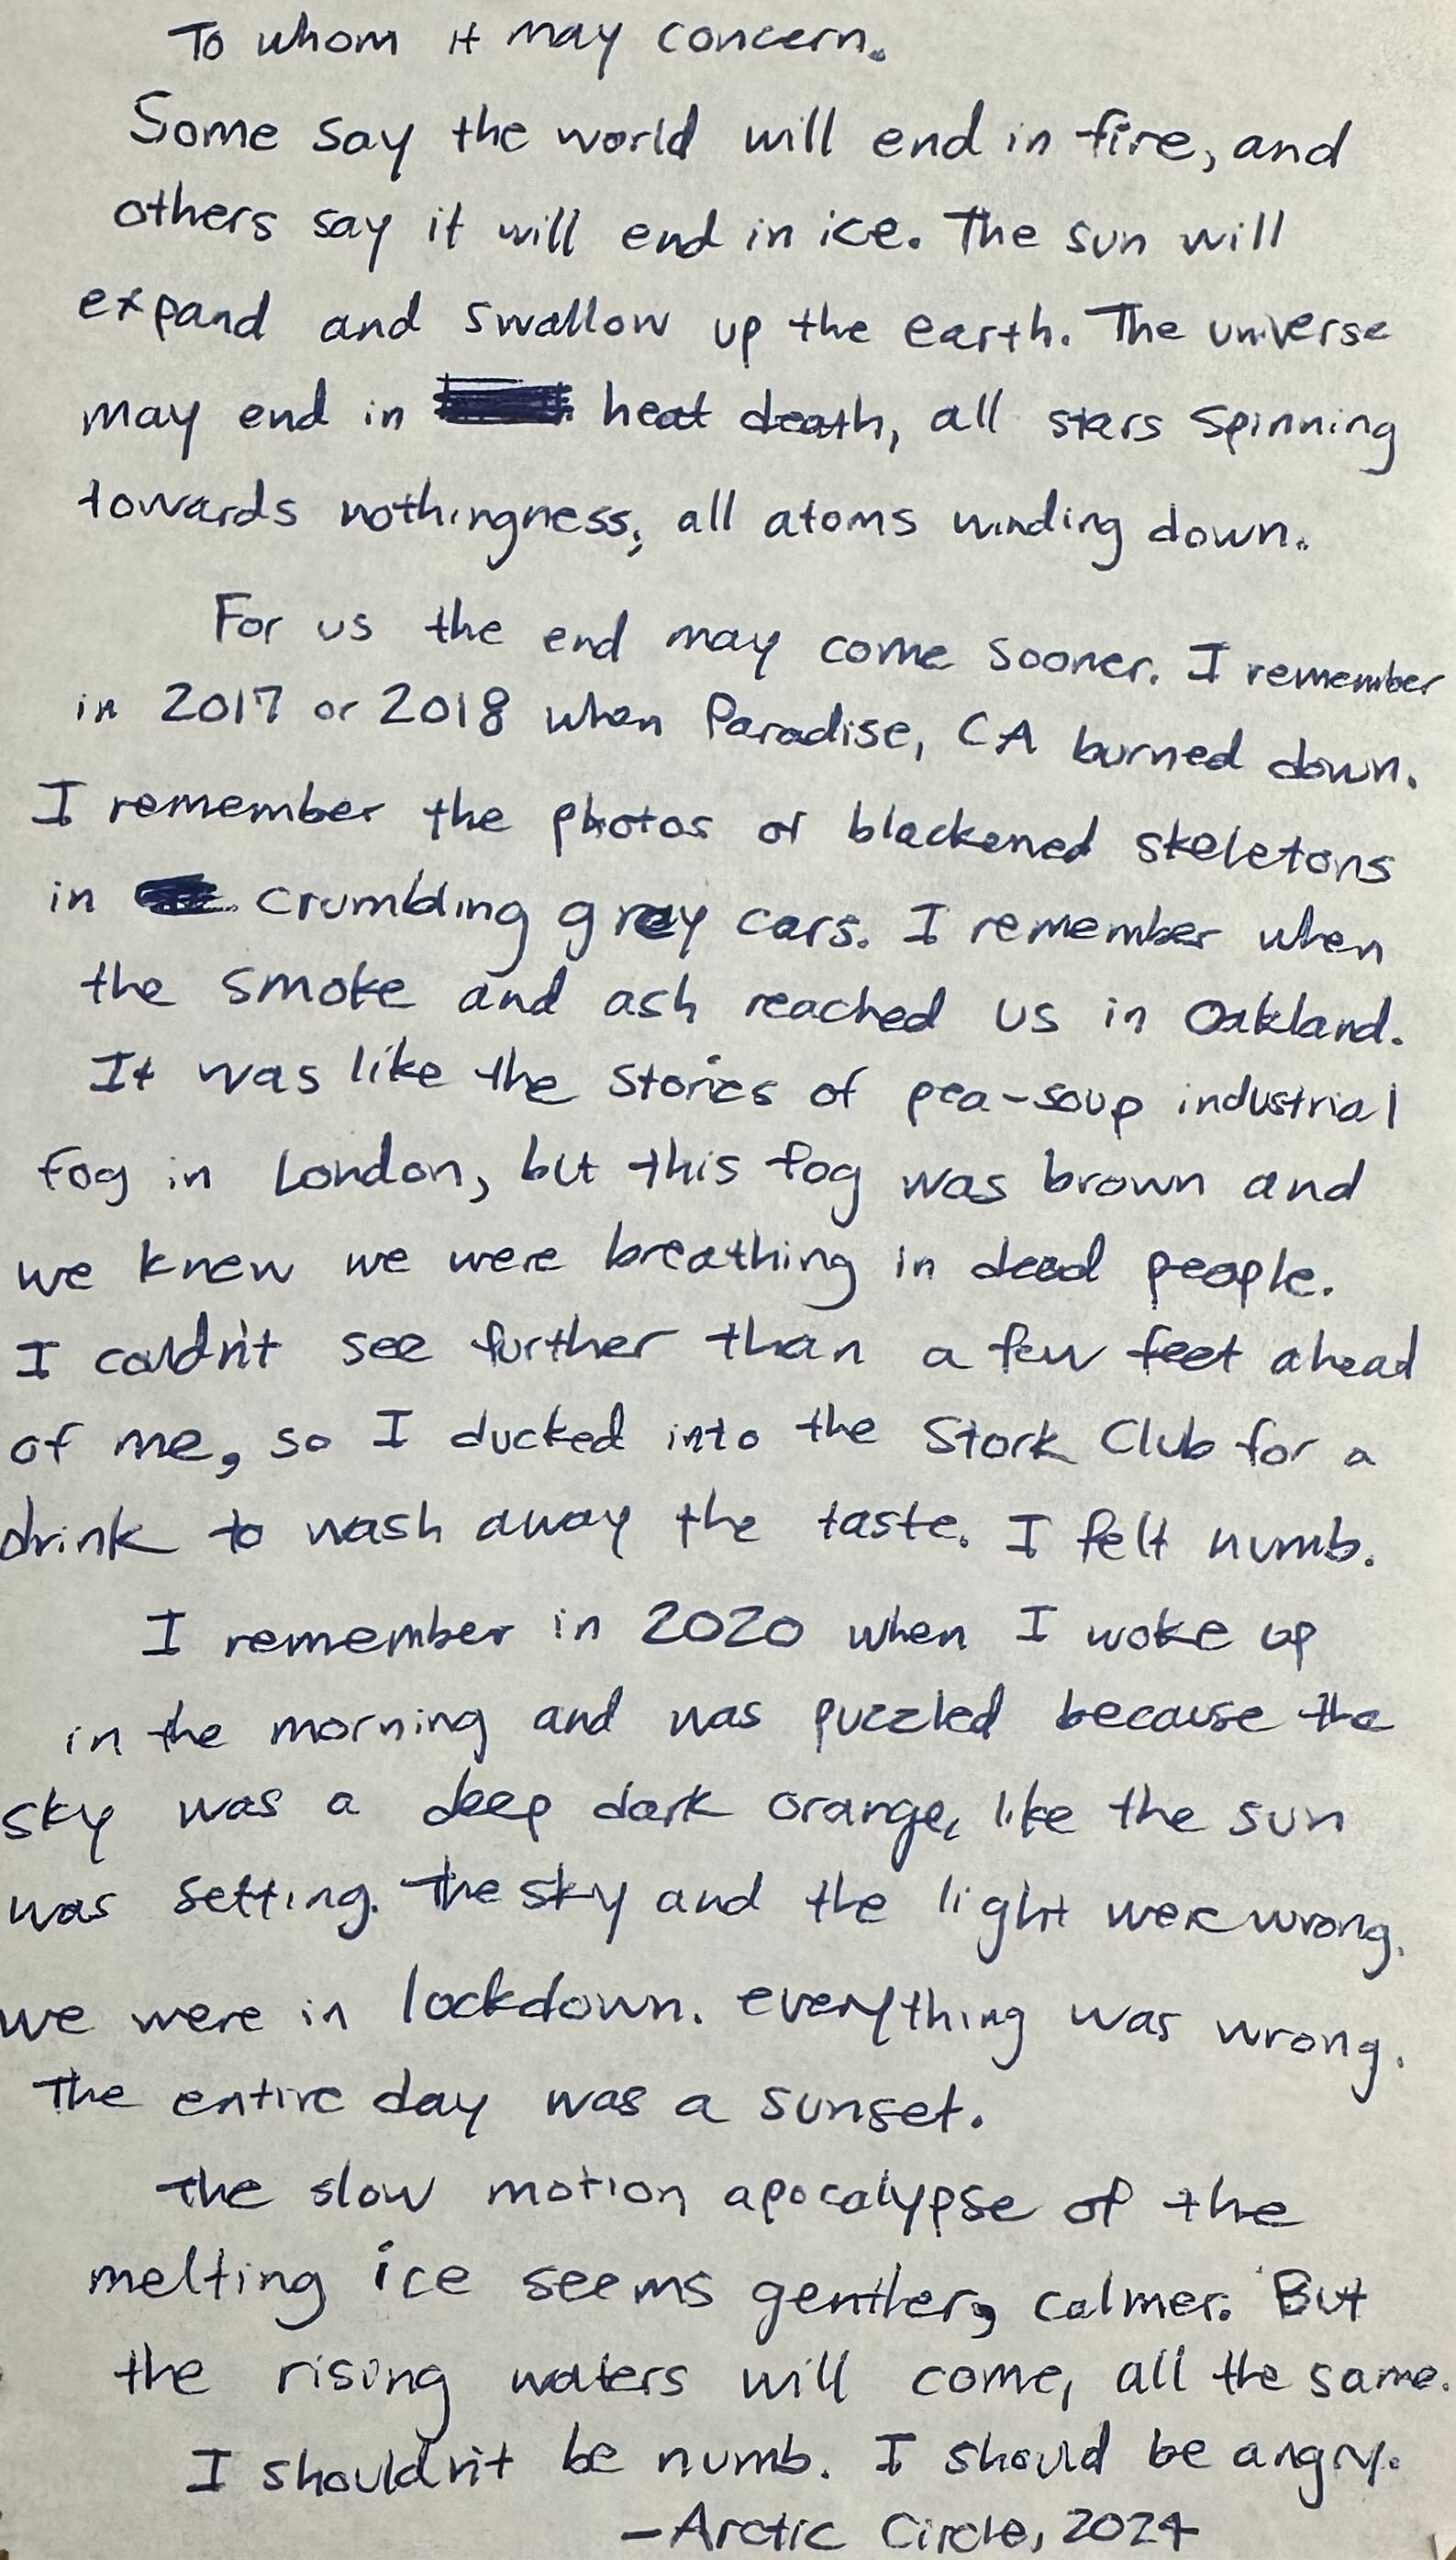 To whom it may concern.
Some say the world will end in fire, and
others say it will end in ice. The sun will
expand and swallow up the earth. The universe
may end in heat death, all stars spinning
towards nothingness, all atoms winding down.
For us the end may come sooner. I remember
in 2017 or 2018 when Paradise, CA burned down.
I remember the photos of blackened skeletons
in crumbling grey cars. I remember when
the smoke and ash reached us in Oakland.
It was like the stories of pea-soup industrial
fog in London, but this fog was brown and
we knew we were breathing in dead people.
I couldn't see further than a few feet ahead
of me, so I ducked into the Stork Club for a
drink to wash away the taste. I felt numb.
I remember in 2020 when I woke up
in the morning and was puzzled because the
sky was a deep dark orange, like the sun
was setting. The sky and the light were wrong.
we were in lockdown. everything was wrong.
The entire day was a sunset.
The slow motion apocalypse of the
melting ice seems gentler, calmer. But
the rising waters will come, all the same.
I shouldn't be numb. I should be angry.
—Arctic Circle, 2024